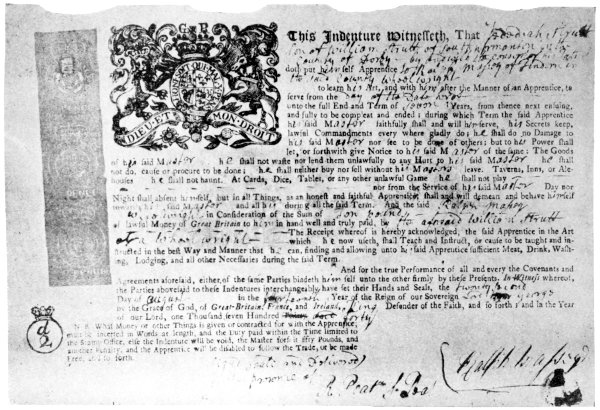 G R
HONI SOIT QUI MAL Y PENSE
DIEU ET MON DROIT
This Indenture Witnesseth, That Jedediah Strutt
Son of William Strutt, of South Normanton in the
County of Derby
doth put himself Apprentice to Ralph Massey of Findern in
the said County Wheelwright
to learn his Art, and with him after the Manner of an Apprentice, to
serve from the Day of the Date hereof
unto the full End and Term of Seven Years, from thence next ensuing,
and fully to be compleat and ended; during which Term the said Apprentice
his said Master faithfully shall and will serve, his Secrets keep,
lawful Commandments every where gladly do; he shall do no Damage to
his said Master nor see to be done of others; but to his Power shall
let, or forthwith give Notice to his said Master of the same: The Goods
of his said Master he shall not waste nor lend them unlawfully to any Hurt to his said Master he shall
not do, cause or procure to be done; he shall neither buy nor sell without his Masters leave. Taverns, Inns, or Ale-
houses he shall not haunt. At Cards, Dice, Tables, or any other unlawful Game he shall not play
nor from the Service of his said Master Day nor
Night shall absent himself, but in all Things, as an honest and faithful Apprentice, shall and will demean and behave himself
towards his said Master and all his during all the said Term. And the said Ralph Massey
Wheelwright in Consideration of the Sum of Ten pounds
of lawful Money of Great Britain to him in hand well and truly paid, by the aforesaid William Strutt
The Receipt whereof is hereby acknowledged, the said Apprentice in the Art
of a wheelwright which he now useth, shall Teach and Instruct, or cause to be taught and in-
structed in the best Way and Manner that he can, finding and allowing unto his said Apprentice sufficient Meat, Drink, Wash-
ing, Lodging, and all other Necessaries during the said Term.
And for the true Performance of all and every the Covenants and
Agreements aforesaid, either of the same Parties bindeth himself unto the other firmly by these Presents. In Witness whereof,
the Parties abovesaid to these Indentures interchangeably have set their Hands and Seals, the twenty
Day of August in the fourteenth Year of the Reign of our Sovereign Lord George
by the Grace of God, of Great-Britain, France, and Ireland, King Defender of the Faith, and so forth; and in the Year
of our Lord, one Thousand seven Hundred forty
N.B. What Money or other Things is given or contracted for with the Apprentice,
must be inserted in Words at length, and the Duty paid within the Time limited to
the Stamp-Office, else the Indenture will be void, the Master forfeit fifty Pounds, and
another Penalty, and the Apprentice will be disabled to follow the Trade, or be made
Free, and so forth.
Sealed and Delivered
presence of
Ralph Massey